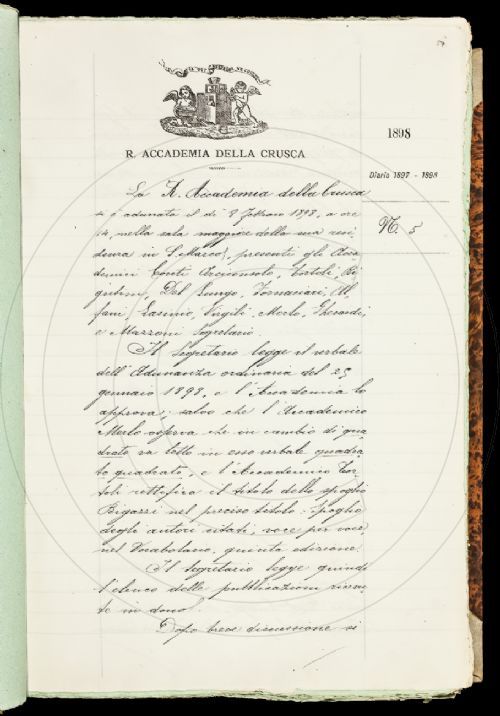 1898
R. ACCADEMIA DELLA CRUSCA
Diario 1897 - 1898
N. 5
La R. Accademia della Crusca
s'è adunata il dì 8 Febbraio 1898, a ore
nella sala maggiore della sua resi-
denza in S. Marco, presenti gli Acca-
demici Conti Arciconsolo, Tortoli, Ri-
gutini, Del Lungo, Fornaciari, Al-
fani, Lasinio, Virgili, Merlo, Gherardi,
e Mazzoni Segretario.
Il Segretario legge il verbale
dell'Adunanza ordinaria del 25
gennaio 1898, e l'Accademia lo
approva, salvo che l'Accademico
Merlo osserva che in cambio di qua-
drato va letto in esso verbale quadra-
to quadrato, e l'Accademico Tor-
toli rettifica il titolo dello spoglio
Bigazzi nel preciso titolo: Spoglio
degli autori citati, voce per voce,
nel Vocabolario, quinta edizione.
Il Segretario legge quindi
l'elenco delle pubblicazioni ricevu-
te in dono.
Dopo breve discussione si